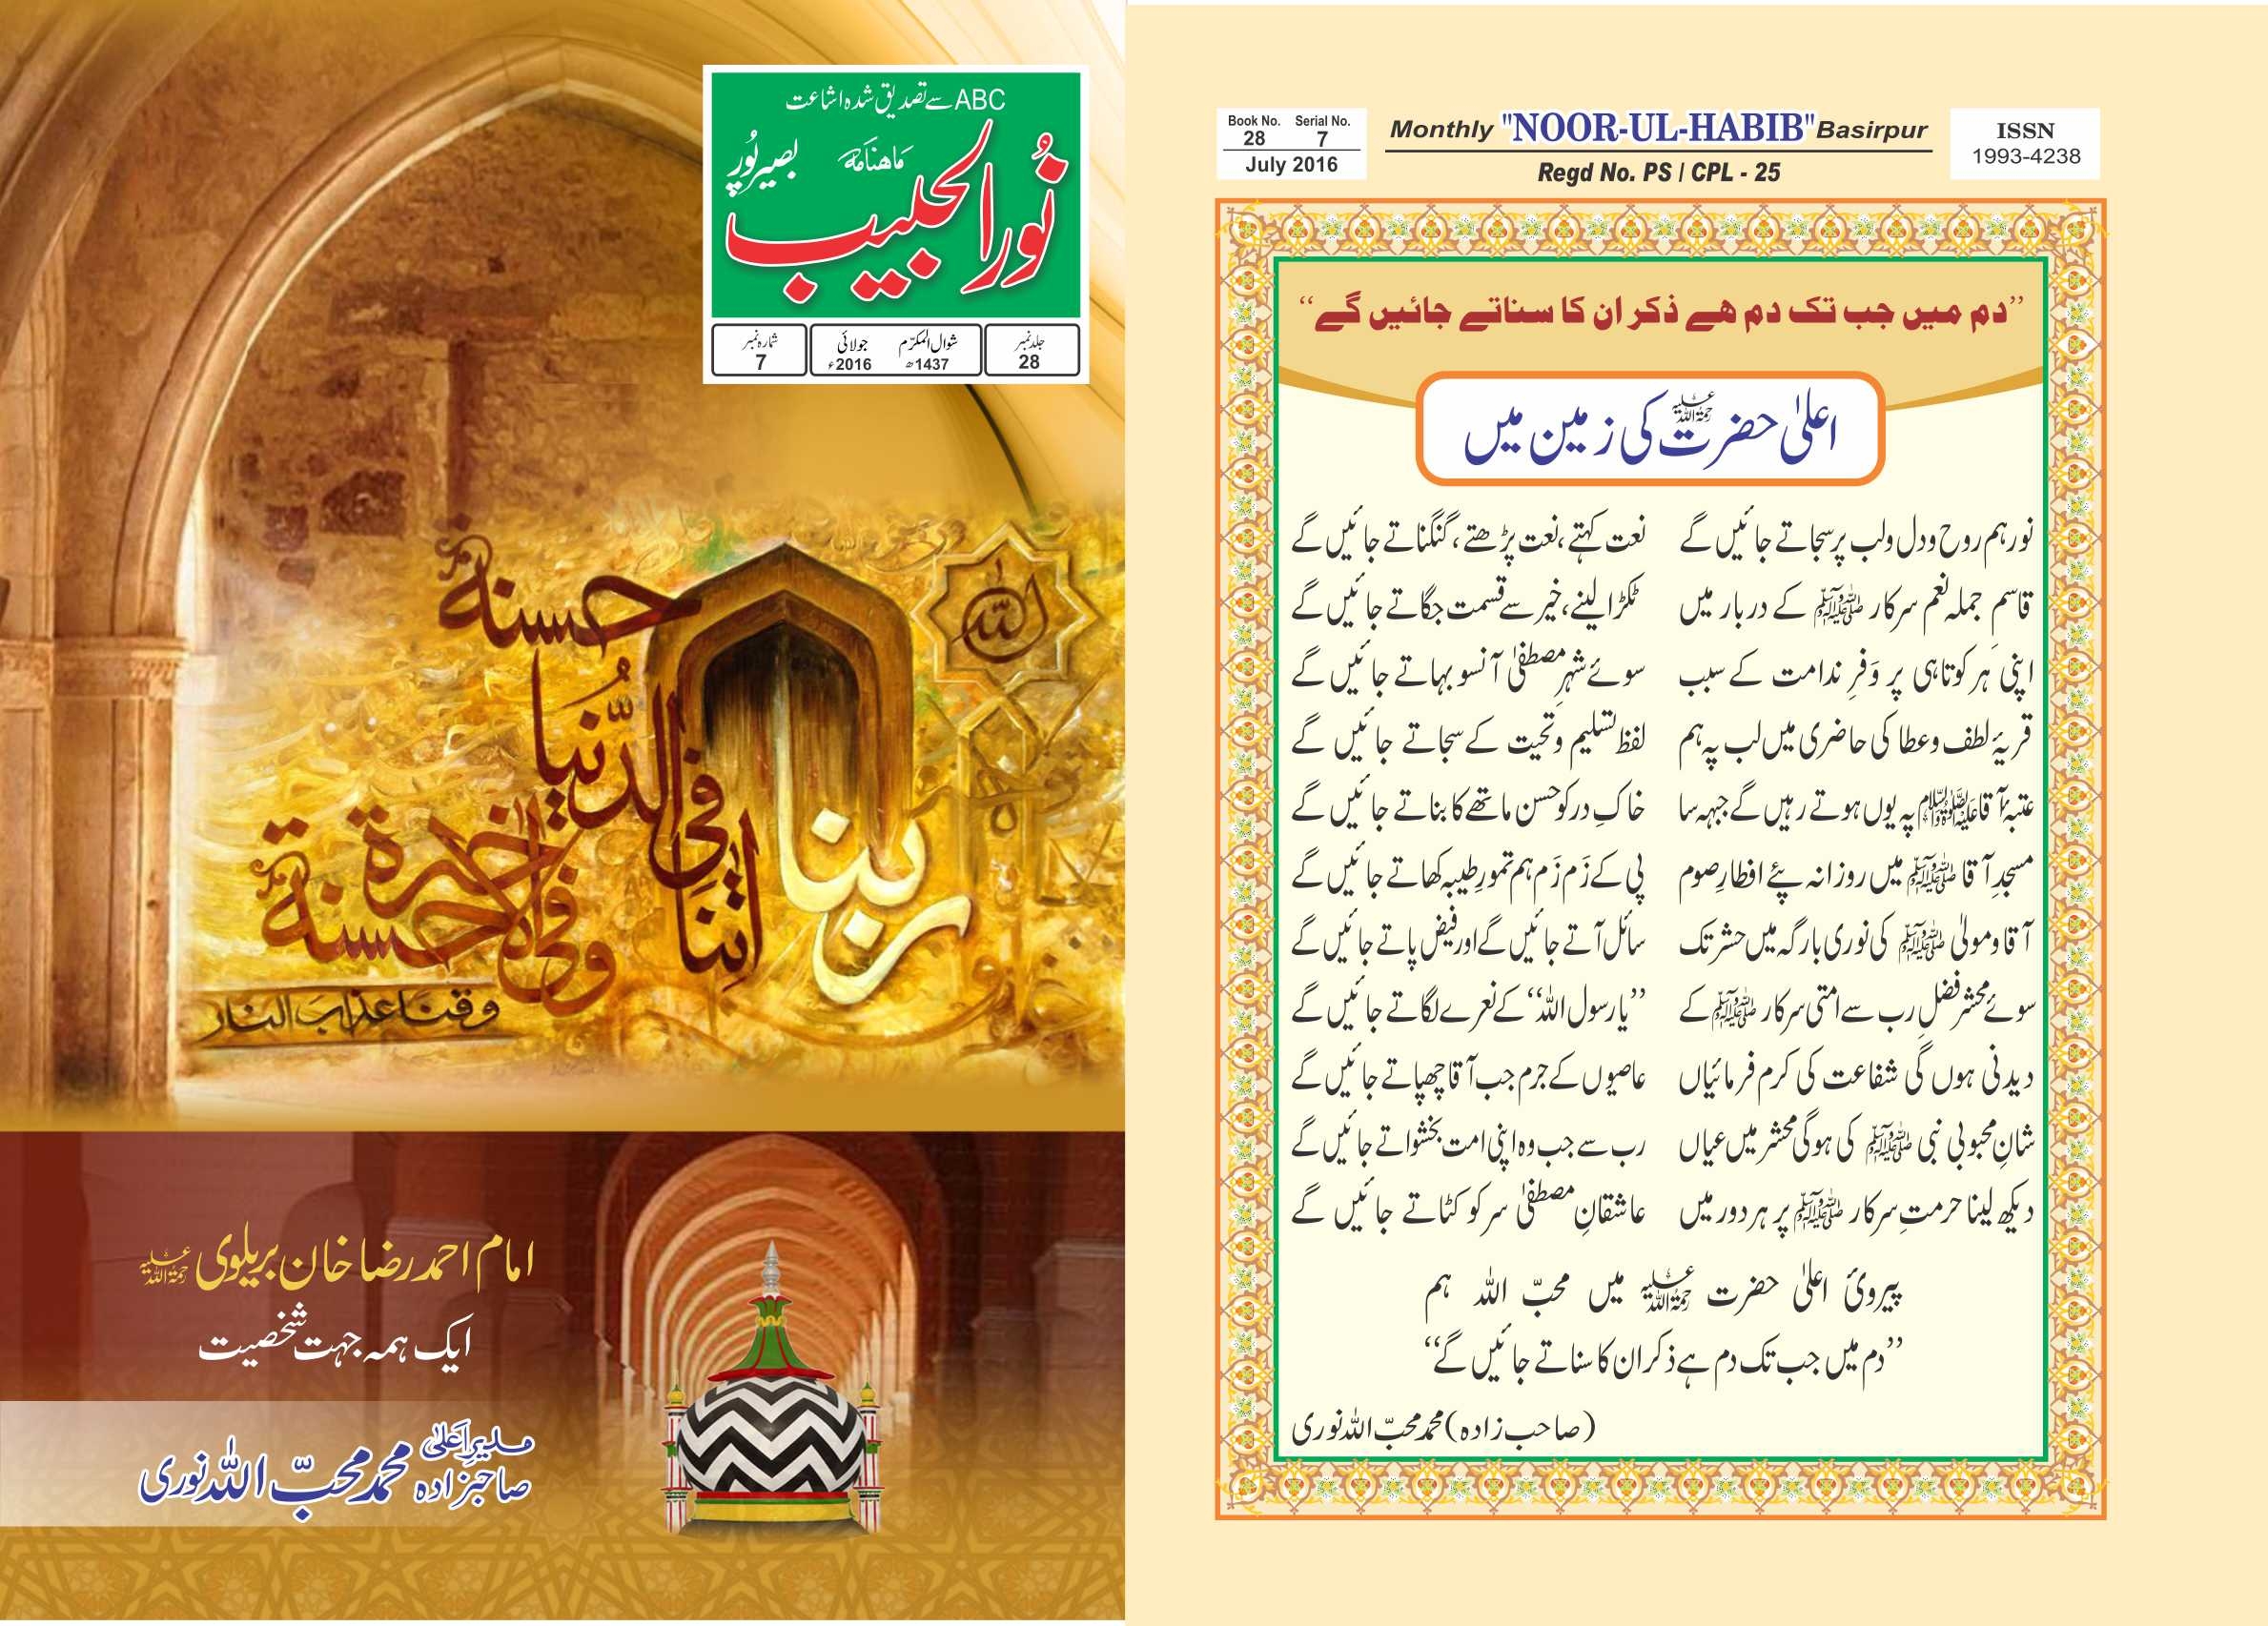 ABC سے تصدیق شدہ اشاعت
ماھنامہ بصیرپور
نورالحبیب
جلد نمبر 28
شوال المکرم 1437ھ جولائی 2016ء
شمارہ نمبر 7
اللہ
ربنا اٰتنا فی الدُّنیا حسنۃ
وفی الاٰخرۃ حسنۃ
وقنا عذابَ النار
امام احمد رضا خان بریلوی رحمۃ اللہ علیہ
ایک ہمہ جہت شخصیت
مدیرِ اَعلیٰ
صاحبزادہ محمد محبّ اللہ نوری
Book No. 28 Serial No. 7
July 2016
Monthly "NOOR-UL-HABIB" Basirpur
Regd No. PS / CPL - 25
ISSN
1993-4238
’’دم میں جب تک دم ھے ذکر ان کا سناتے جائیں گے‘‘
اعلیٰ حضرت رحمۃ اللہ علیہ کی زمین میں
نور ہم روح و دل و لب پر سجاتے جائیں گے نعت کہتے، نعت پڑھتے، گنگناتے جائیں گے
قاسمِ جملہ نعم سرکار ﷺ کے دربار میں ٹکڑا لینے، خیر سے قسمت جگاتے جائیں گے
اپنی ہر کوتاہی پر وَفرِ ندامت کے سبب سوئے شہرِ مصطفیٰ آنسو بہاتے جائیں گے
قریۂ لطف و عطا کی حاضری میں لب پہ ہم لفظ تسلیم و تحیت کے سجاتے جائیں گے
عتبۂ آقا ﷺ پہ یوں ہوتے رہیں گے جبہہ سا خاکِ در کو حسن ماتھے کا بناتے جائیں گے
مسجدِ آقا ﷺ میں روزانہ پئے افطارِ صوم پی کے زَم زَم ہم تمورِ طیبہ کھاتے جائیں گے
آقا و مولیٰ ﷺ کی نوری بارگہ میں حشر تک سائل آتے جائیں گے اور فیض پاتے جائیں گے
سوئے محشر فضلِ رب سے امتی سرکار ﷺ کے ’’یا رسول اللہ‘‘ کے نعرے لگاتے جائیں گے
دیدنی ہوں گی شفاعت کی کرم فرمائیاں عاصیوں کے جرم جب آقا چھپاتے جائیں گے
شانِ محبوبی نبی ﷺ کی ہوگی محشر میں عیاں رب سے جب وہ اپنی امت بخشواتے جائیں گے
دیکھ لینا حرمتِ سرکار ﷺ پر ہر دور میں عاشقانِ مصطفیٰ سر کو کٹاتے جائیں گے
پیرویٔ اعلیٰ حضرت رحمۃ اللہ علیہ میں محبّ اللہ ہم
’’دم میں جب تک دم ہے ذکر ان کا سناتے جائیں گے‘‘
(صاحب زادہ) محمد محبّ اللہ نوری